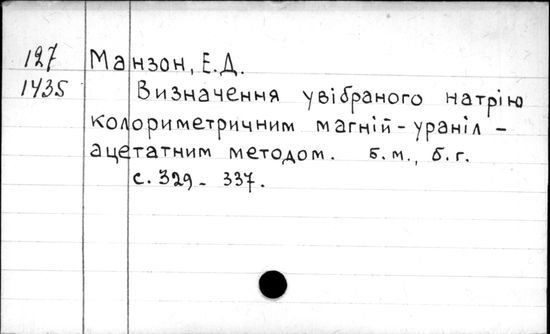 127 Манзон, Е.Д.
1435 Визначення увібраного натрію
колориметричним магній-ураніл-
ацетатним методом. б.м., б.г.
с. 329-337.